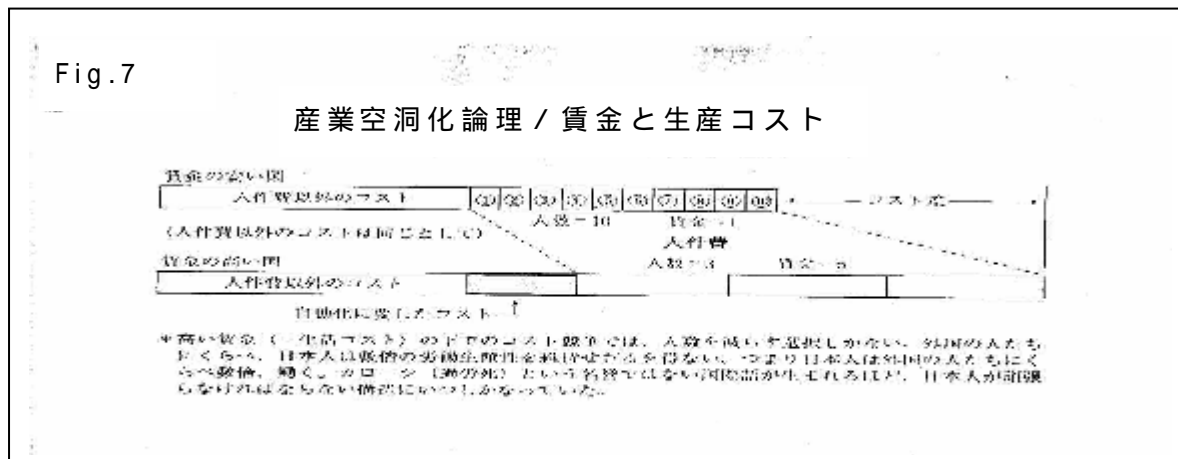 Fig.7
産業空洞化論理/賃金と生産コスト
賃金の安い国
人件費以外のコスト (1) (2) (3) (4) (5) (6) (7) (8) (9) (10) コスト差
人数=10 賃金=1
(人件費以外のコストは同じとして)
人件費
賃金の高い国
人数=3 賃金=5
人件費以外のコスト
自動化に要したコスト
*高い賃金(=生活コスト)の下でのコスト競争では、人数を減らす選択しかない。外国の人たち
にくらべ、日本人は数倍の労働生産性を発揮せざるを得ない。つまり日本人は外国の人たちにく
らべ数倍、働く。カローシ(過労死)という名誉ではない国際語が生まれるほど、日本人が頑張
らなければならない構造にいつしかなっていた。